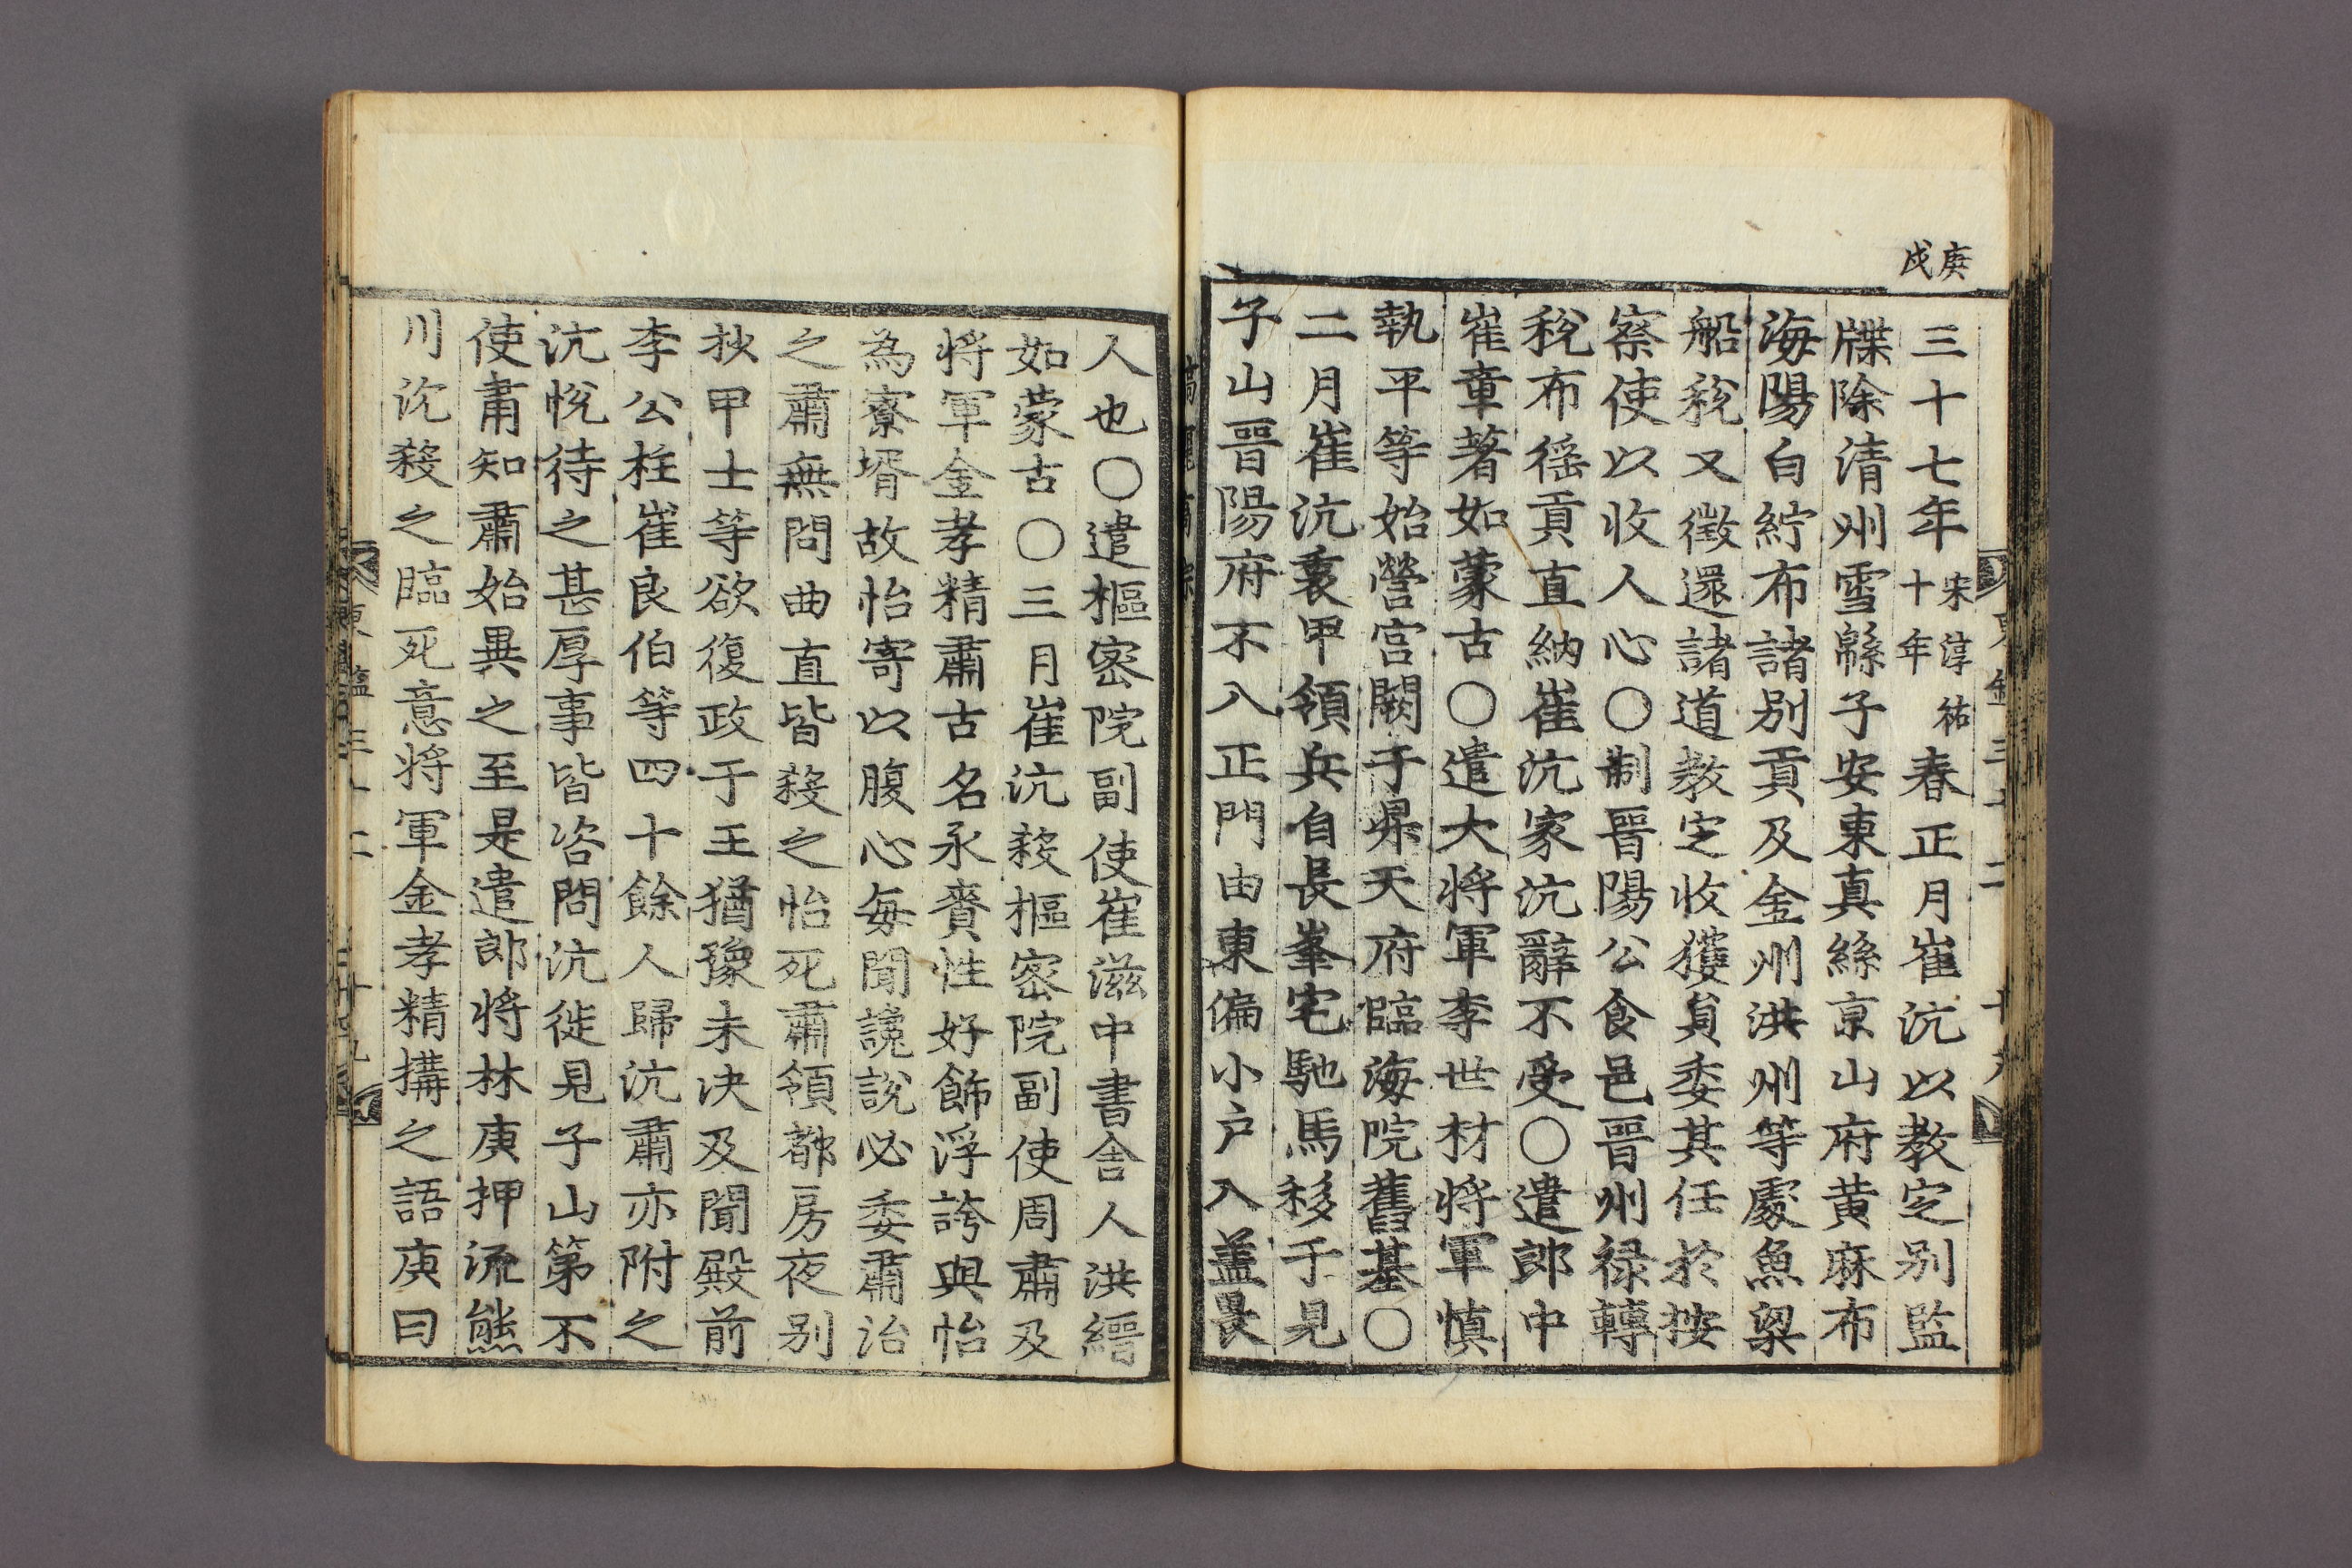 庚戌
三十七年宋淳祐十年春正月崔沆以教定别監
牒除清州雪緜子安東真絲京山府黄麻布
海陽白紵布諸别貢及金州洪州等處魚梁
船税又徵還諸道教定收獲貟委其任於按
察使以收人心○制晋陽公食邑晋州禄轉
税布徭貢直納崔沆家沆辭不受○遣郎中
崔章著如蒙古○遣大将軍李世材将軍慎
執平等始營宫闕于昇天府臨海院舊基○
二月崔沆裹甲領兵自長峯宅馳馬移于見
子山晋陽府不入正門由東偏小户入盖畏
人也○遣樞密院副使崔滋中書舍人洪縉
如蒙古○三月崔沆殺樞密院副使周肅及
将軍金孝精肅古名永賚性好飾浮誇與怡
為寮壻故怡寄以腹心每聞讒説必委肅治
之肅無問曲直皆殺之怡死肅領都房夜别
抄甲士等欲復政于王猶豫未决及聞殿前
李公柱崔良伯等四十餘人歸沆肅亦附之
沆悦待之甚厚事皆咨問沆徙見子山第不
使肅知肅始異之至是遣郎将林庚押流熊
川沉殺之臨死意将軍金孝精搆之語庚曰